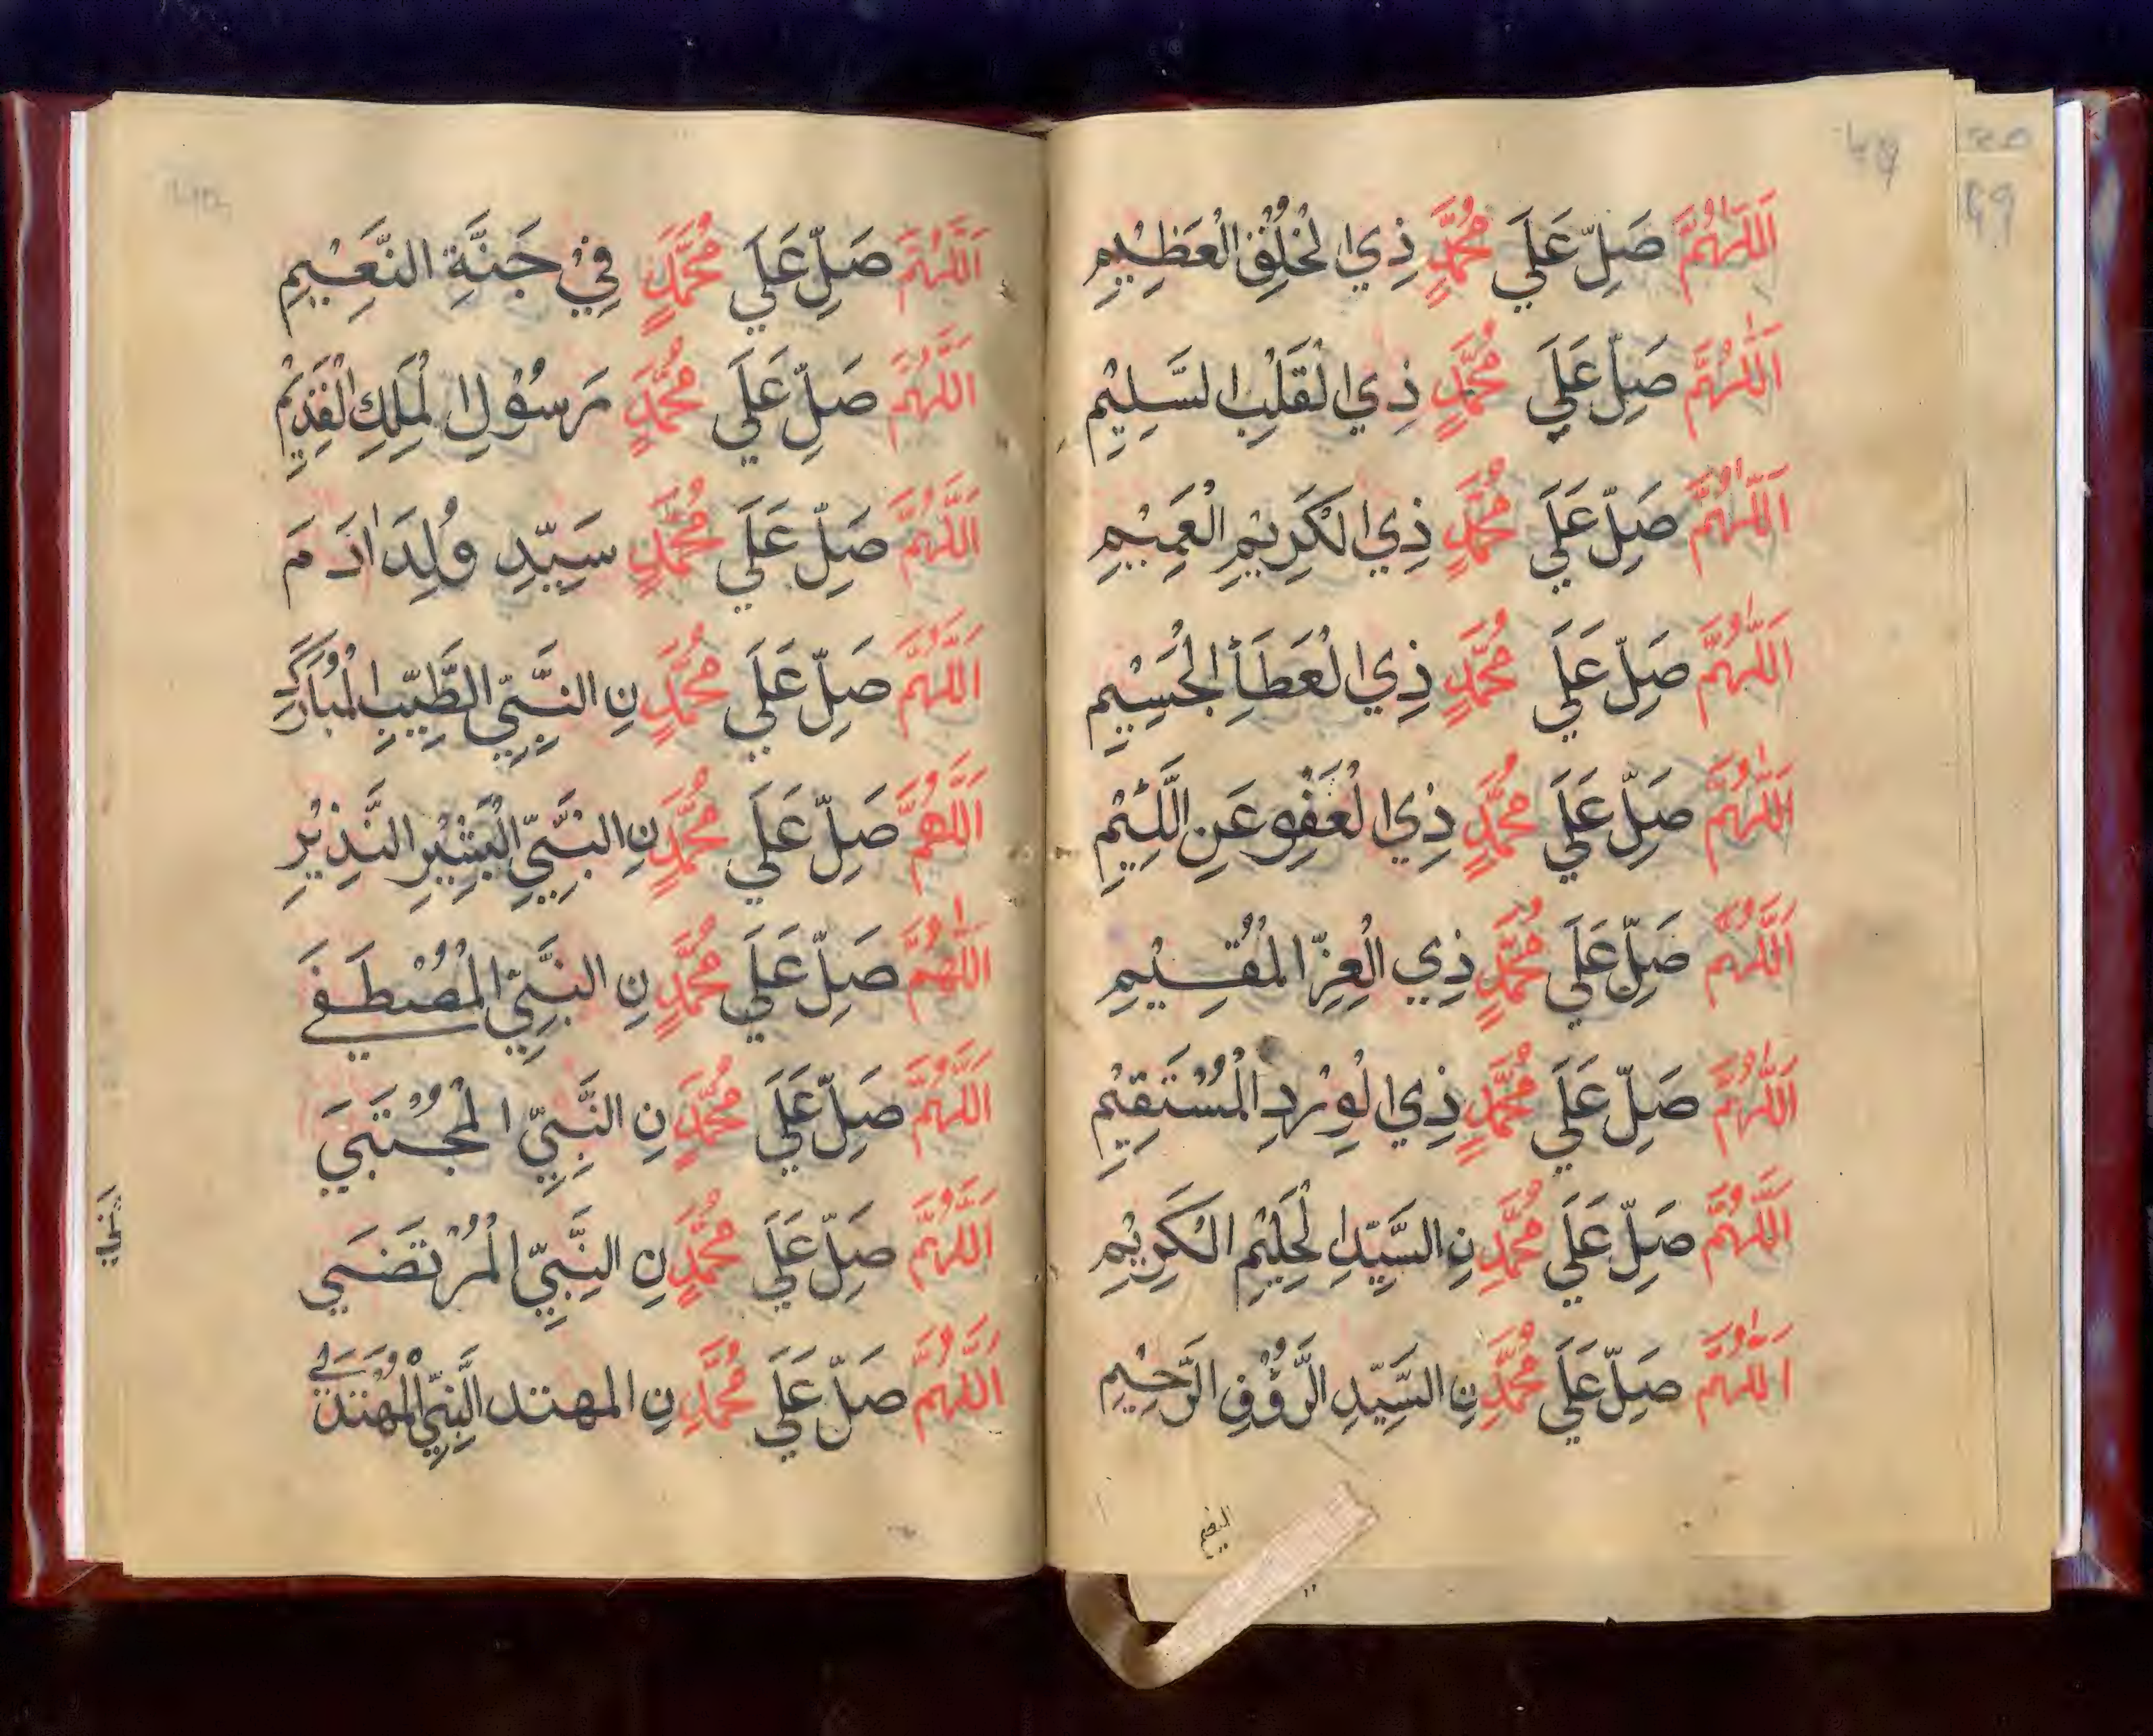 اَللّٰهُمَّ صَلِّ عَلَي مُحَمَّدٍ ذِي الْخُلُقِ الْعَظِيْمِ
اَللّٰهُمَّ صَلِّ عَلَي مُحَمَّدٍ ذِي الْقَلْبِ السَّلِيْمِ
اَللّٰهُمَّ صَلِّ عَلَي مُحَمَّدٍ ذِي الْكَرِيْمِ الْعَمِيْمِ
اَللّٰهُمَّ صَلِّ عَلَي مُحَمَّدٍ ذِي الْعَطَأِ الْجَسِيْمِ
اَللّٰهُمَّ صَلِّ عَلَي مُحَمَّدٍ ذِي الْعَفْوِ عَنِ اللَّئِيْمِ
اَللّٰهُمَّ صَلِّ عَلَي مُحَمَّدٍ ذِي الْعِزِّ الْمُقِيْمِ
اَللّٰهُمَّ صَلِّ عَلَي مُحَمَّدٍ ذِي الْوِرْدِ الْمُسْتَقِيْمِ
اَللّٰهُمَّ صَلِّ عَلَي مُحَمَّدٍ نِ السَّيِّدِ الْحَلِيْمِ الْكَرِيْمِ
اَللّٰهُمَّ صَلِّ عَلَي مُحَمَّدٍ نِ السَّيِّدِ الرَّؤُفِ الرَّحِيْمِ
اَللّٰهُمَّ صَلِّ عَلَي مُحَمَّدٍ فِيْ جَنَّةِ النَّعِيْمِ
اَللّٰهُمَّ صَلِّ عَلَي مُحَمَّدٍ رَسُوْلِ الْمَلِكِ الْقَدِيْمِ
اَللّٰهُمَّ صَلِّ عَلَي مُحَمَّدٍ سَيِّدِ وُلِدَ اٰدَمَ
اَللّٰهُمَّ صَلِّ عَلَي مُحَمَّدٍ نِ النَّبِيِّ الطَّيِّبِ الْمُبَارَكِ
اَللّٰهُمَّ صَلِّ عَلَي مُحَمَّدٍ نِ النَّبِيِّ الْبَشِيْرِ النَّذِيْرِ
اَللّٰهُمَّ صَلِّ عَلَي مُحَمَّدٍ نِ النَّبِيِّ الْمُصْطَفَي
اَللّٰهُمَّ صَلِّ عَلَي مُحَمَّدٍ نِ النَّبِيِّ الْمُجْتَبَي
اَللّٰهُمَّ صَلِّ عَلَي مُحَمَّدٍ نِ النَّبِيِّ الْمُرْتَضَي
اَللّٰهُمَّ صَلِّ عَلَي مُحَمَّدٍ نِ المهتد النَّبِيِّ الْمُهْتَدَي